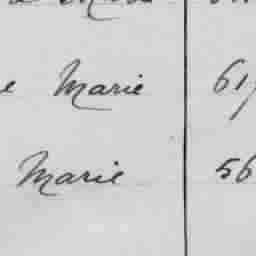 e Marie 61
Marie 56